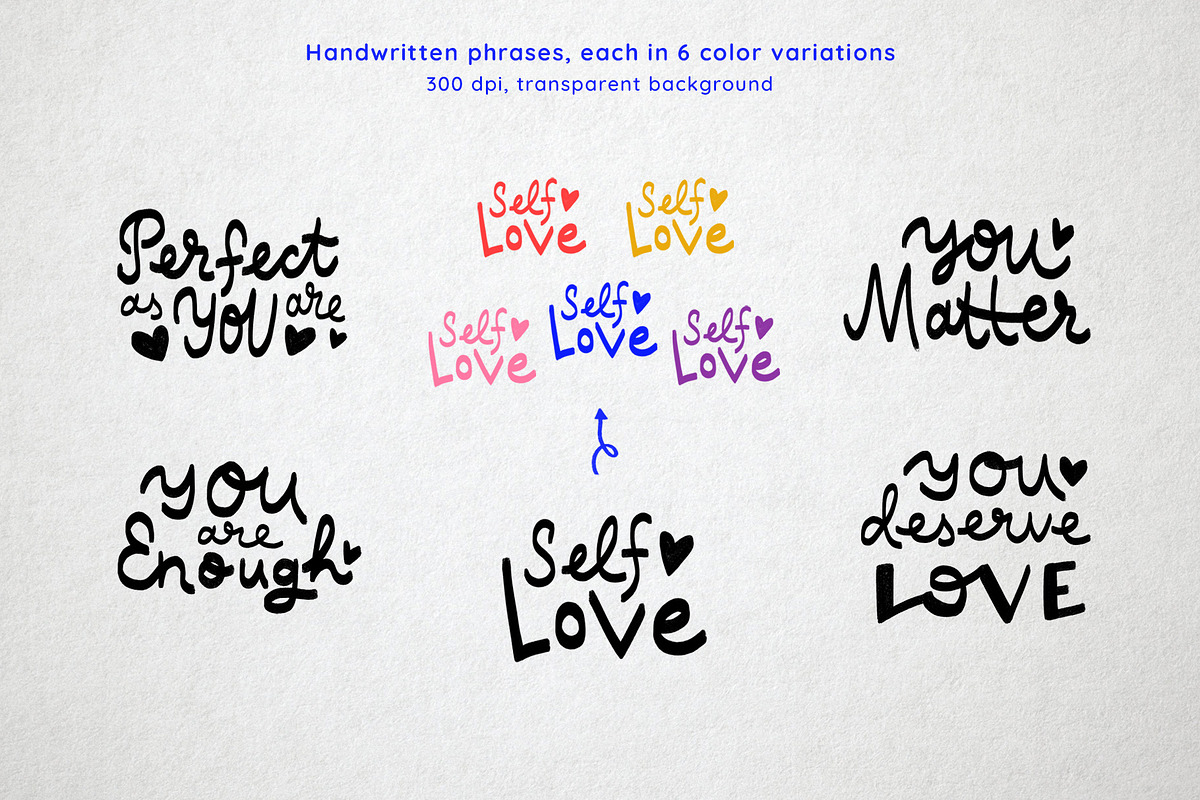 Handwritten phrases, each in 6 color variations
300 dpi, transparent background
Perfect
as YOU are
Self
Love
Self
Love
Self
Love
Self
Love
Self
Love
you
Matter
you
are
Enough
Self
Love
you
deserve
LOVE